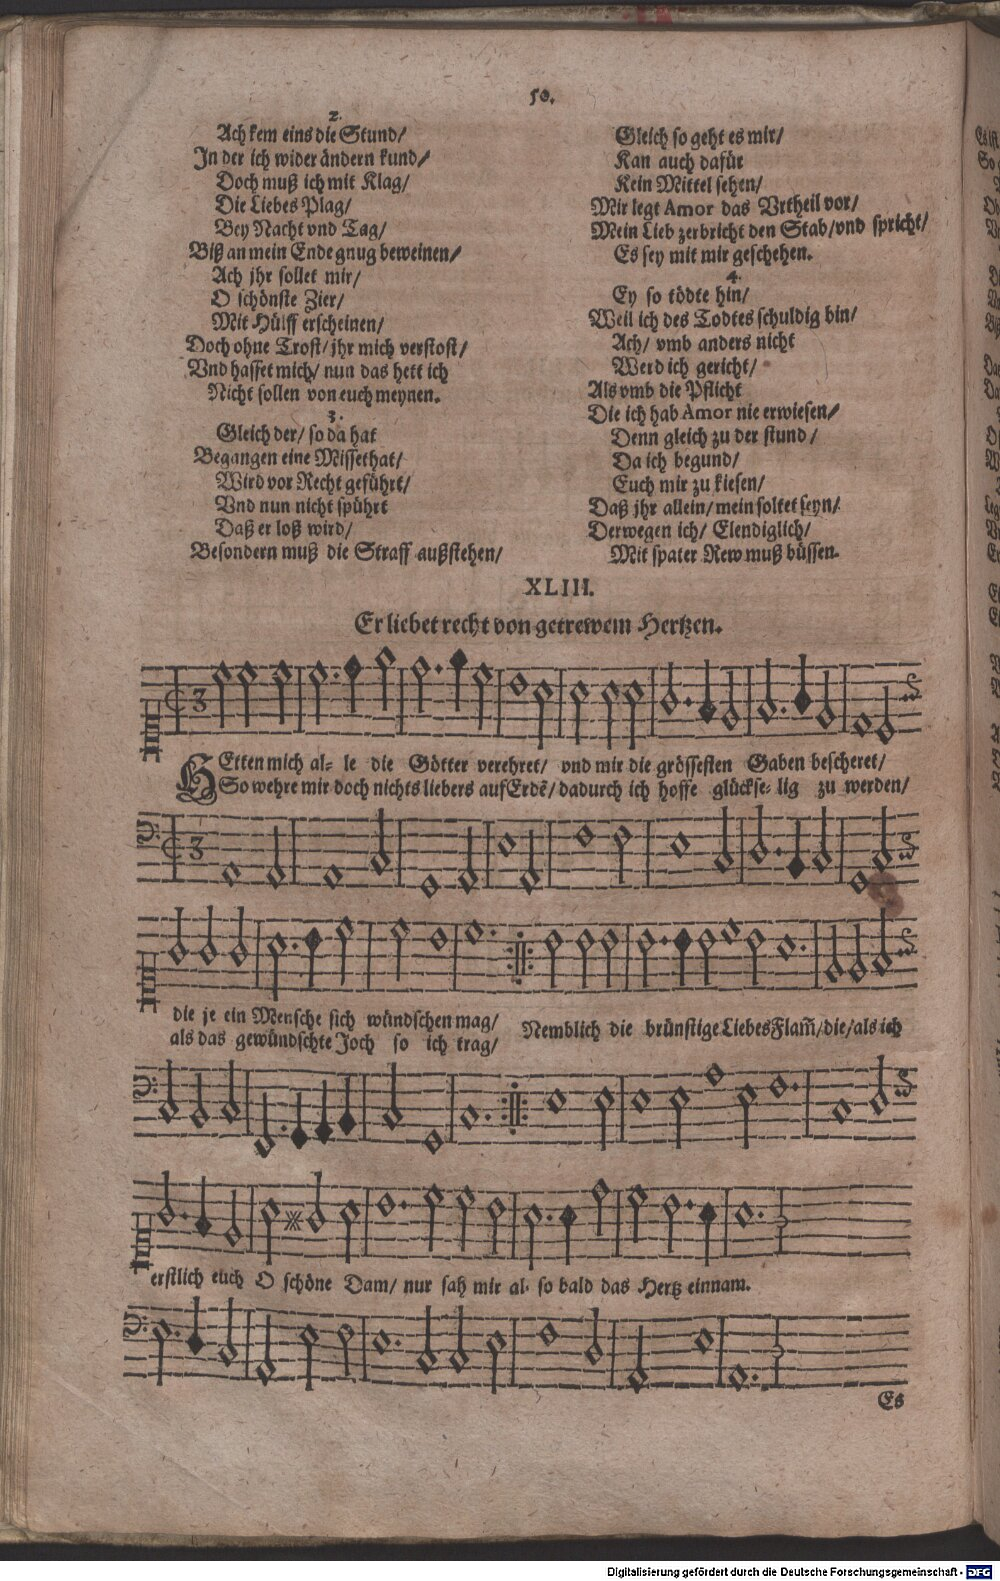 50.
2.
Ach kem eins die Stund/
In der ich wider ändern kund/
Doch muß ich mit Klag/
Die Liebes Plag/
Bey Nacht vnd Tag/
Biß an mein Ende gnug beweinen/
Ach jhr sollet mir/
O schönste Zier/
Mit Hülff erscheinen/
Doch ohne Trost/ jhr mich verstost/
Vnd hasset mich/ nun das hett ich
Nicht sollen von euch meynen.
3.
Gleich der/ so da hat
Begangen eine Missethat/
Wird vor Recht geführt/
Vnd nun nicht spührt
Daß er loß wird/
Besondern muß die Straff außstehen/
Gleich so geht es mir/
Kan auch dafür
Kein Mittel sehen/
Mir legt Amor das Vrtheil vor/
Mein Lieb zerbricht den Stab/vnd spricht/
Es sey mit mir geschehen.
4.
Ey so tödte hin/
Weil ich des Todtes schuldig bin/
Ach/ vmb anders nicht
Werd ich gericht/
Als vmb die Pflicht
Die ich hab Amor nie erwiesen/
Denn gleich zu der stund/
Da ich begund/
Euch mir zu kiesen/
Daß jhr allein/ mein soltet seyn/
Derwegen ich/ Elendiglich/
Mit spater Rew muß büssen.
XLIII.
Er liebet recht von getrewem Hertzen.
HEtten mich al- le die Götter verehret/ vnd mir die grössesten Gaben bescheret/
So wehre mir doch nichts liebers auf Erdē/ dadurch ich hoffe glückse- lig zu werden/
die je ein Mensche sich wündschen mag/ Nemblich die brünstige Liebes Flam̄/die/als ich
als das gewündschte Joch so ich trag/
erstlich euch O schöne Dam/ nur sah mir al- so bald das Hertz einnam.
Es
Digitalisierung gefördert durch die Deutsche Forschungsgemeinschaft - DFG